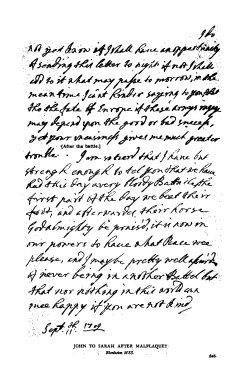 I do
not yett know if I shall have an oppertunity
of sending this letter to night if not I shall
add to it what may passe to morrow, in the
mean time I cant hinder saying to you
tho the fate of Europe if these armys ingage
may depend upon the good or bad success,
yet your uneasiness gives me much greater
trouble.
(After the battle.)
I am so tired that I have but
strength enough to tel you that we have
had this day a very bloody Battel, the
first part of the day we beat their
foot, and afterwards their horse
God almighty be prais'd, it is now in
our powers to have what Peace wee
please, and I may be pretty well
of never being in another Battel but
that nor nothing in this world can
mee happy if you are not kind
Sept 1709
JOHN TO SARAH AFTER MALPLAQUET
Blenheim MSS.